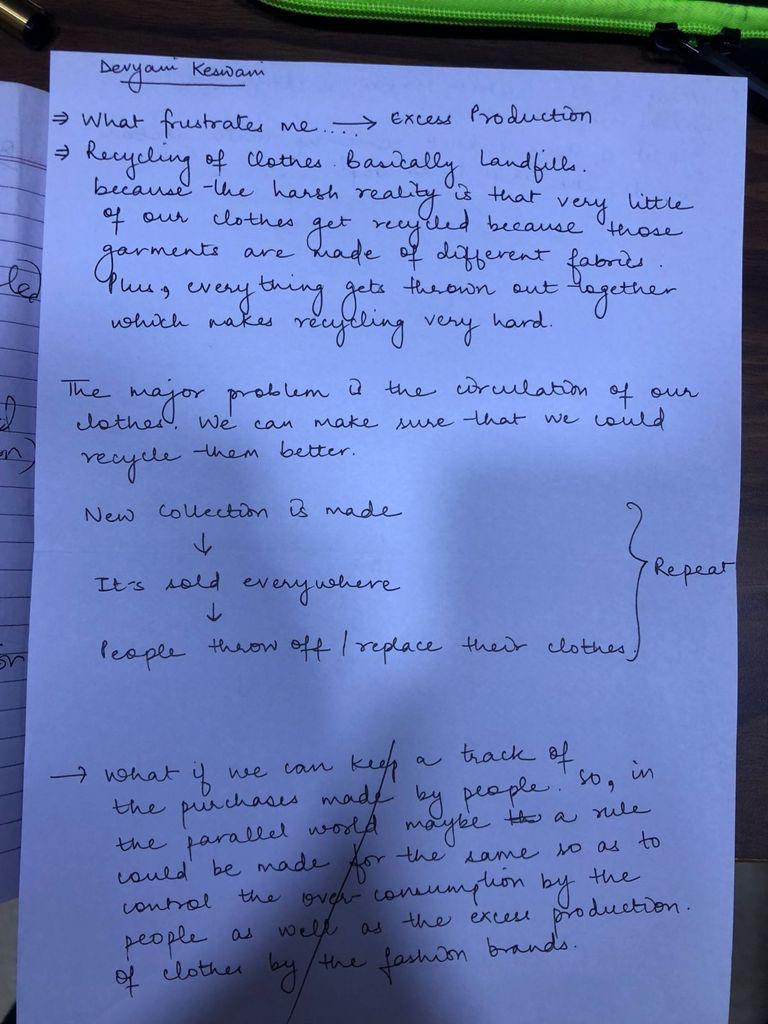 Devyani Keswani
⇒ What frustrates me....→ Excess Production
⇒ Recycling of clothes. Basically Landfills.
because the harsh reality is that very little
of our clothes get recycled because those
garments are made of different fabrics.
Plus, everything gets thrown out together
which makes recycling very hard.
The major problem is the circulation of our
clothes. We can make sure that we could
recycle them better.
New collection is made
↓
It's sold everywhere
↓
People throw off / replace their clothes.
Repeat
→ What if we can keep a track of
the purchases made by people. So, in
the parallel world maybe a rule
could be made for the same so as to
control the over consumption by the
people as well as the excess production.
of clothes by the fashion brands.
led
on)